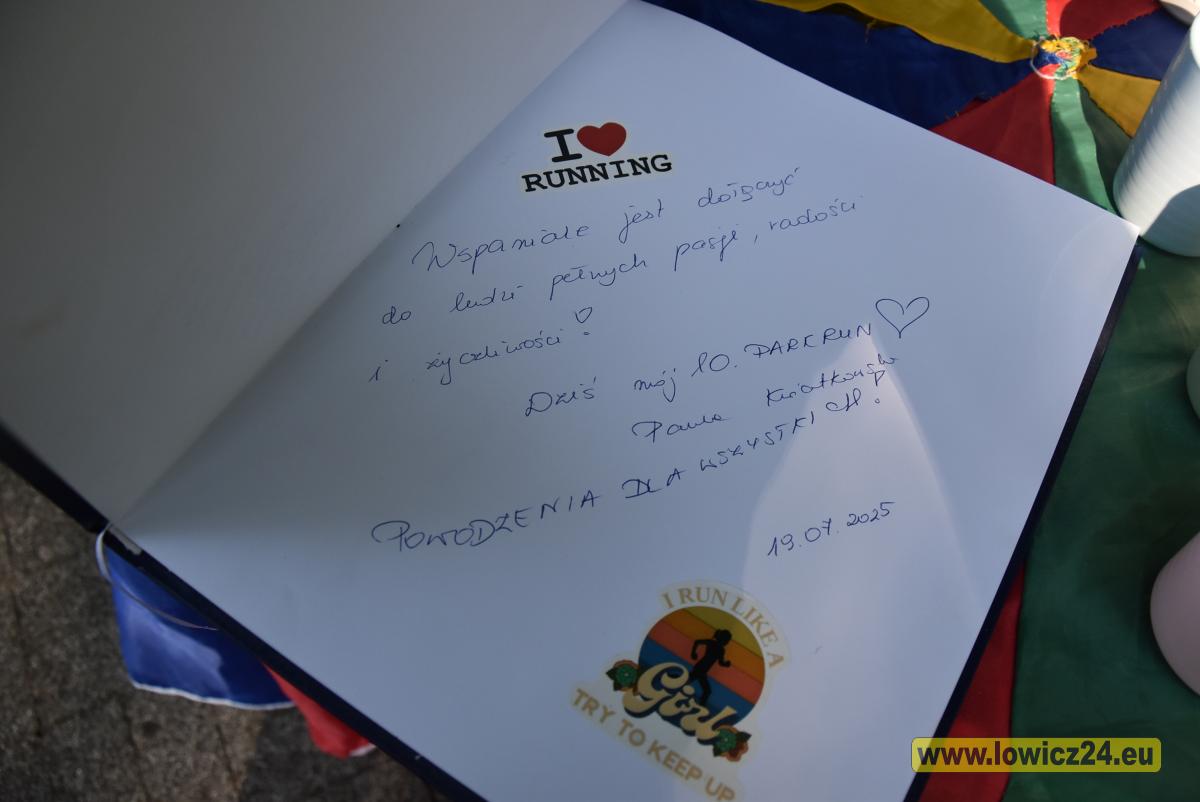 I ❤
RUNNING
Wspaniale jest dołączyć
do ludzi pełnych pasji, radości
i życzliwości!
Dziś mój 10. PARKRUN ♡
Paula Kwiatkowska
POWODZENIA DLA WSZYSTKICH!
19.07.2025
I RUN LIKE A
Girl
TRY TO KEEP UP
www.lowicz24.eu